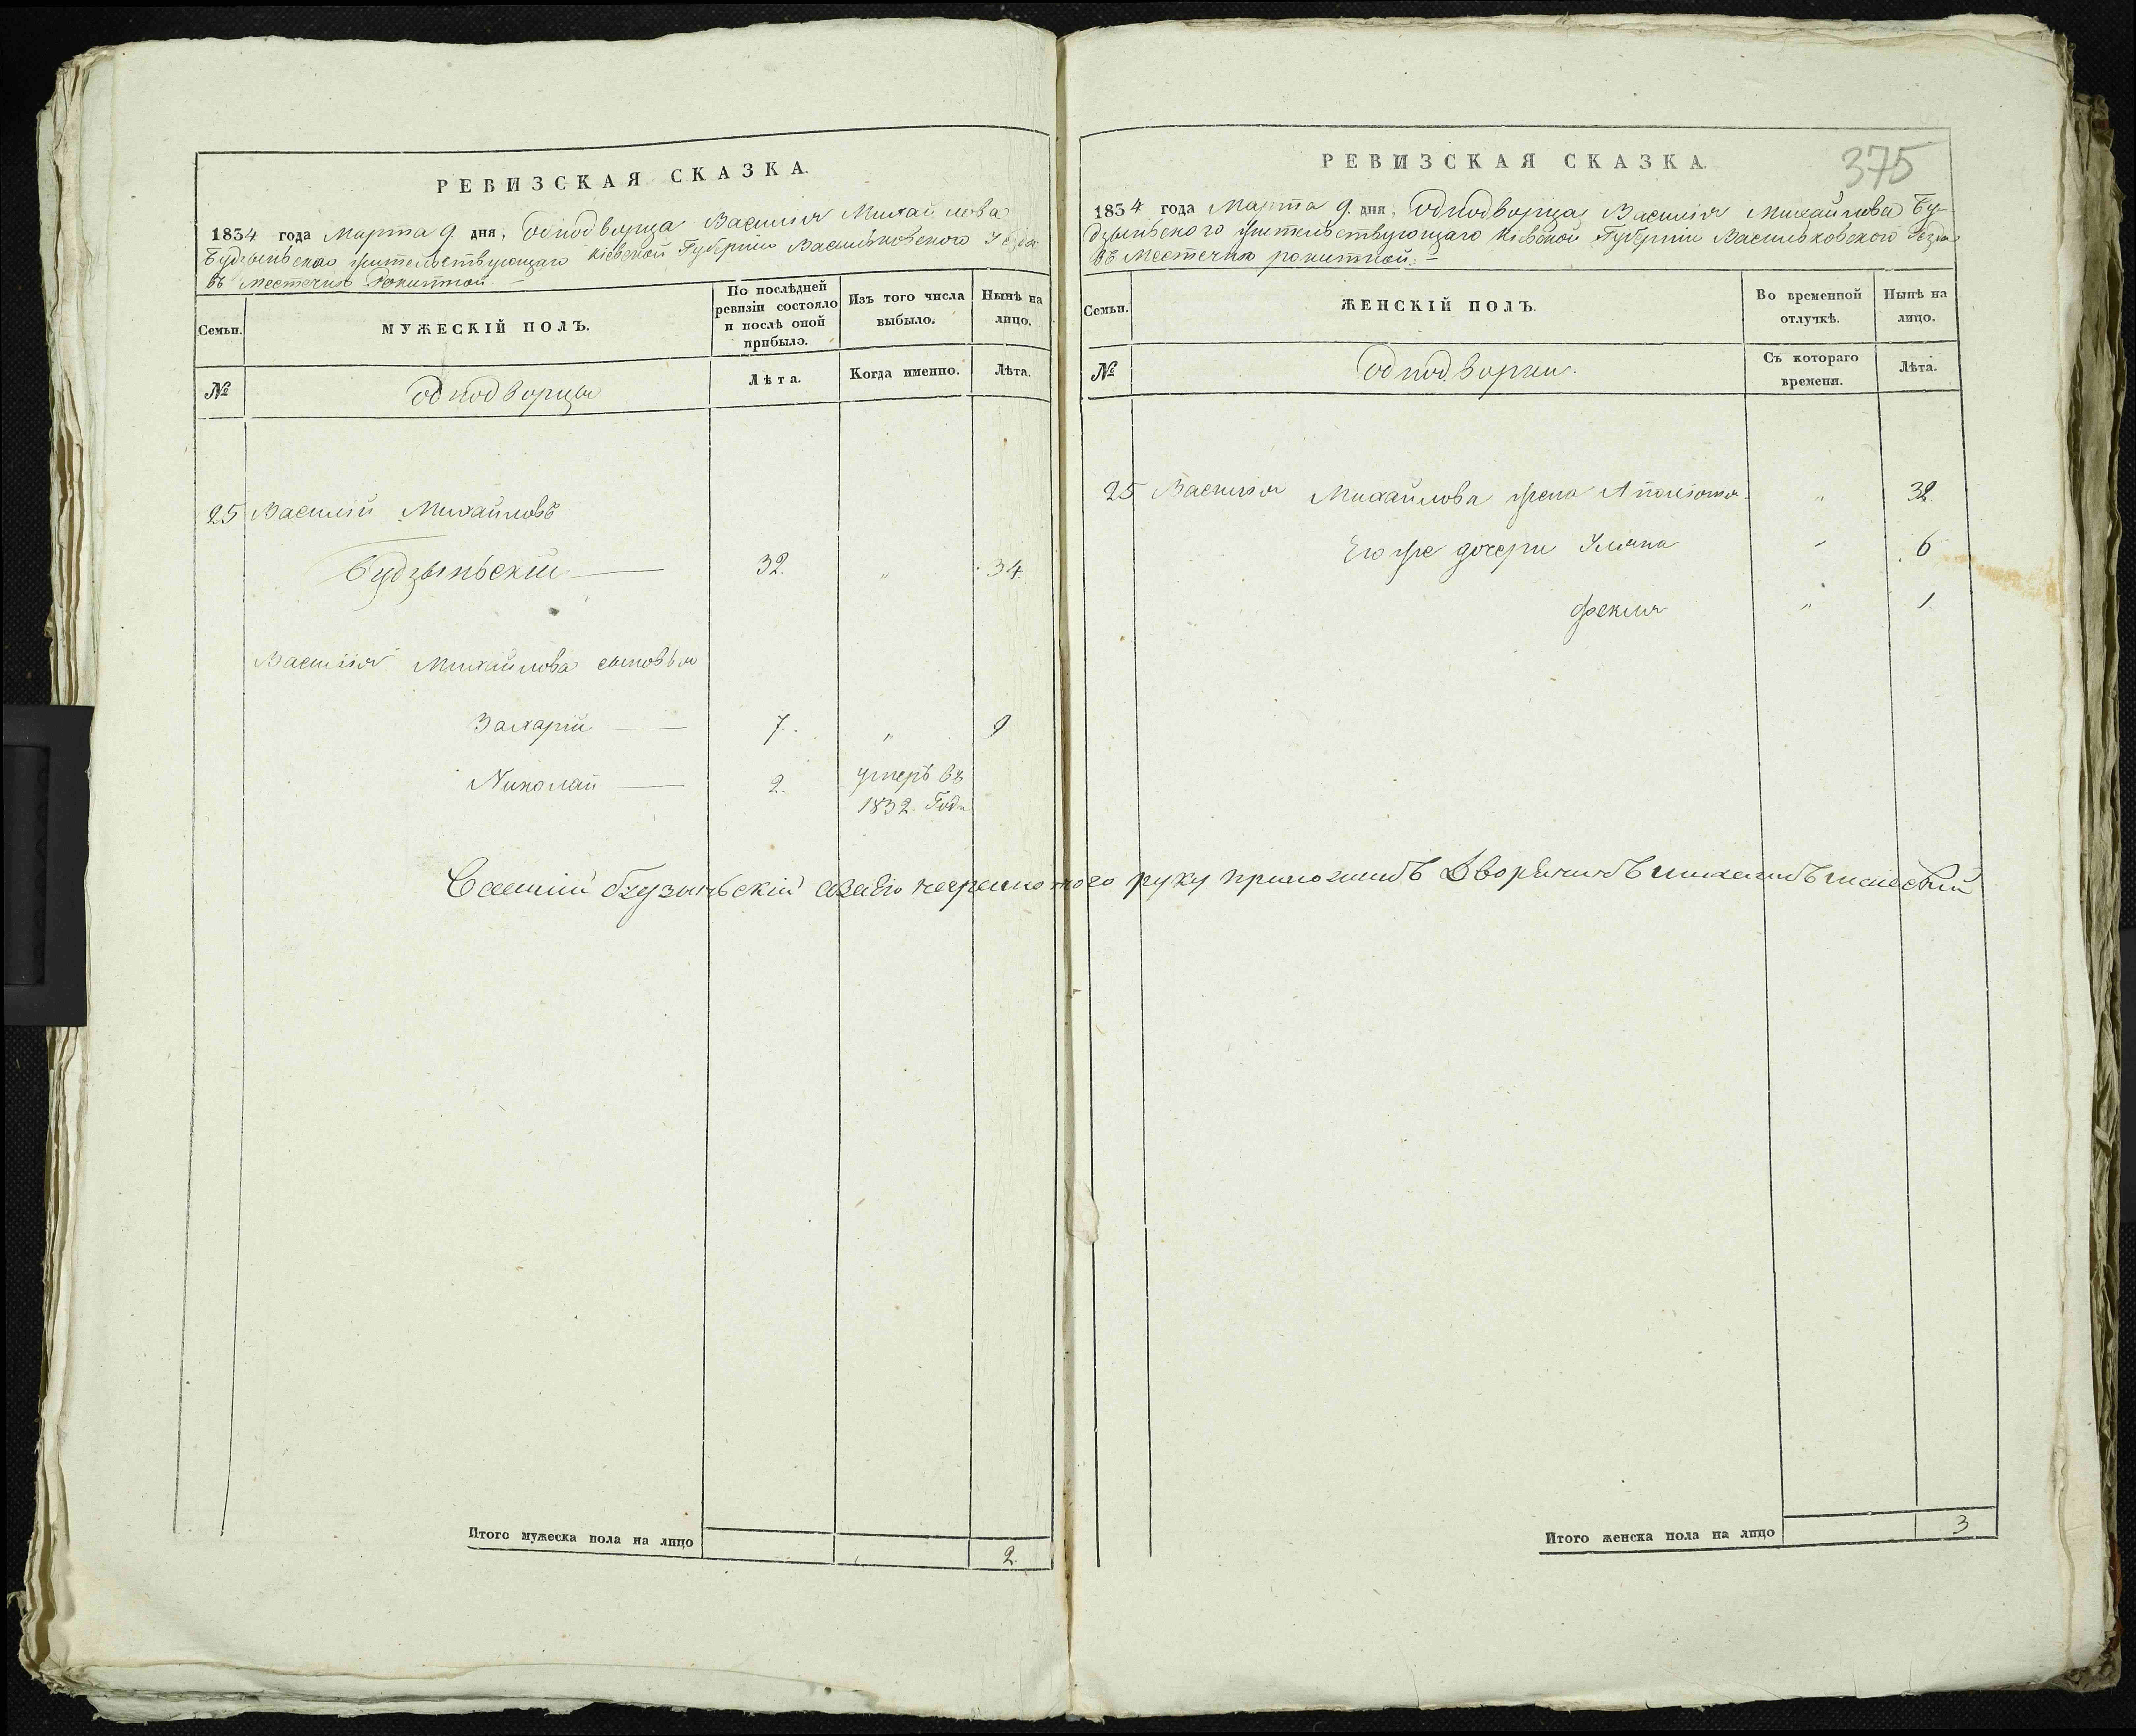 РЕВИЗСКАЯ СКАЗКА.
1834 года Марта 9. дня, Однодворца Василія Михайлова
Будзыньского жительствующаго Кіевской Губерніи Васильковского Уѣзда
въ Местечкѣ Рокитной
Семьи.
МУЖЕСКІЙ ПОЛЪ.
По послѣдней
ревизіи состояло
и послѣ оной
прибыло.
Изъ того числа
выбыло.
Нынѣ на
лицо.
№
Однодворцы
Лѣта.
Когда именно.
Лѣта.
25 Василій Михайловъ
Будзыньскій — 32. " 34.
Василія Михайлова сыновья
Захарій — 7. " 9
Николай — 2. умеръ въ
1832. Годѣ
Итого мужеска пола на лицо 2.
375
РЕВИЗСКАЯ СКАЗКА.
1834 года Марта 9. дня, Однодворца Василія Михайлова Бу-
дзыньского жительствующаго Кіевской Губерніи Васильковского Уѣзда
въ Местечкѣ рокитной. —
Семьи.
ЖЕНСКІЙ ПОЛЪ.
Во временной
отлучкѣ.
Нынѣ на
лицо.
№
Однодворки.
Съ котораго
времени.
Лѣта.
25 Василія Михайлова жена " 32.
Его же дочери Уляна " 6
Фекля " 1
руку приложилъ Дворянинъ
Итого женска пола на лицо 3